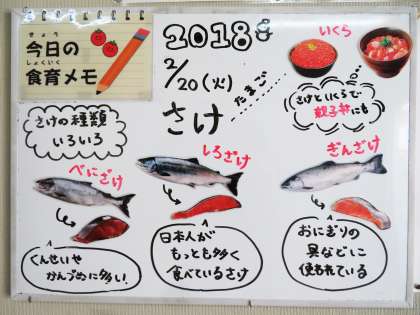 きょう
今日の
しょくいく
食育メモ
2018年
2/20(火)
さけ
たまご
いくら
さけといくらで
親子丼にも
さけの種類
いろいろ
べにざけ
しろざけ
ぎんざけ
くんせいや
かんづめに多い!
日本人が
もっとも多く
食べているさけ
おにぎりの
具などに
使われている